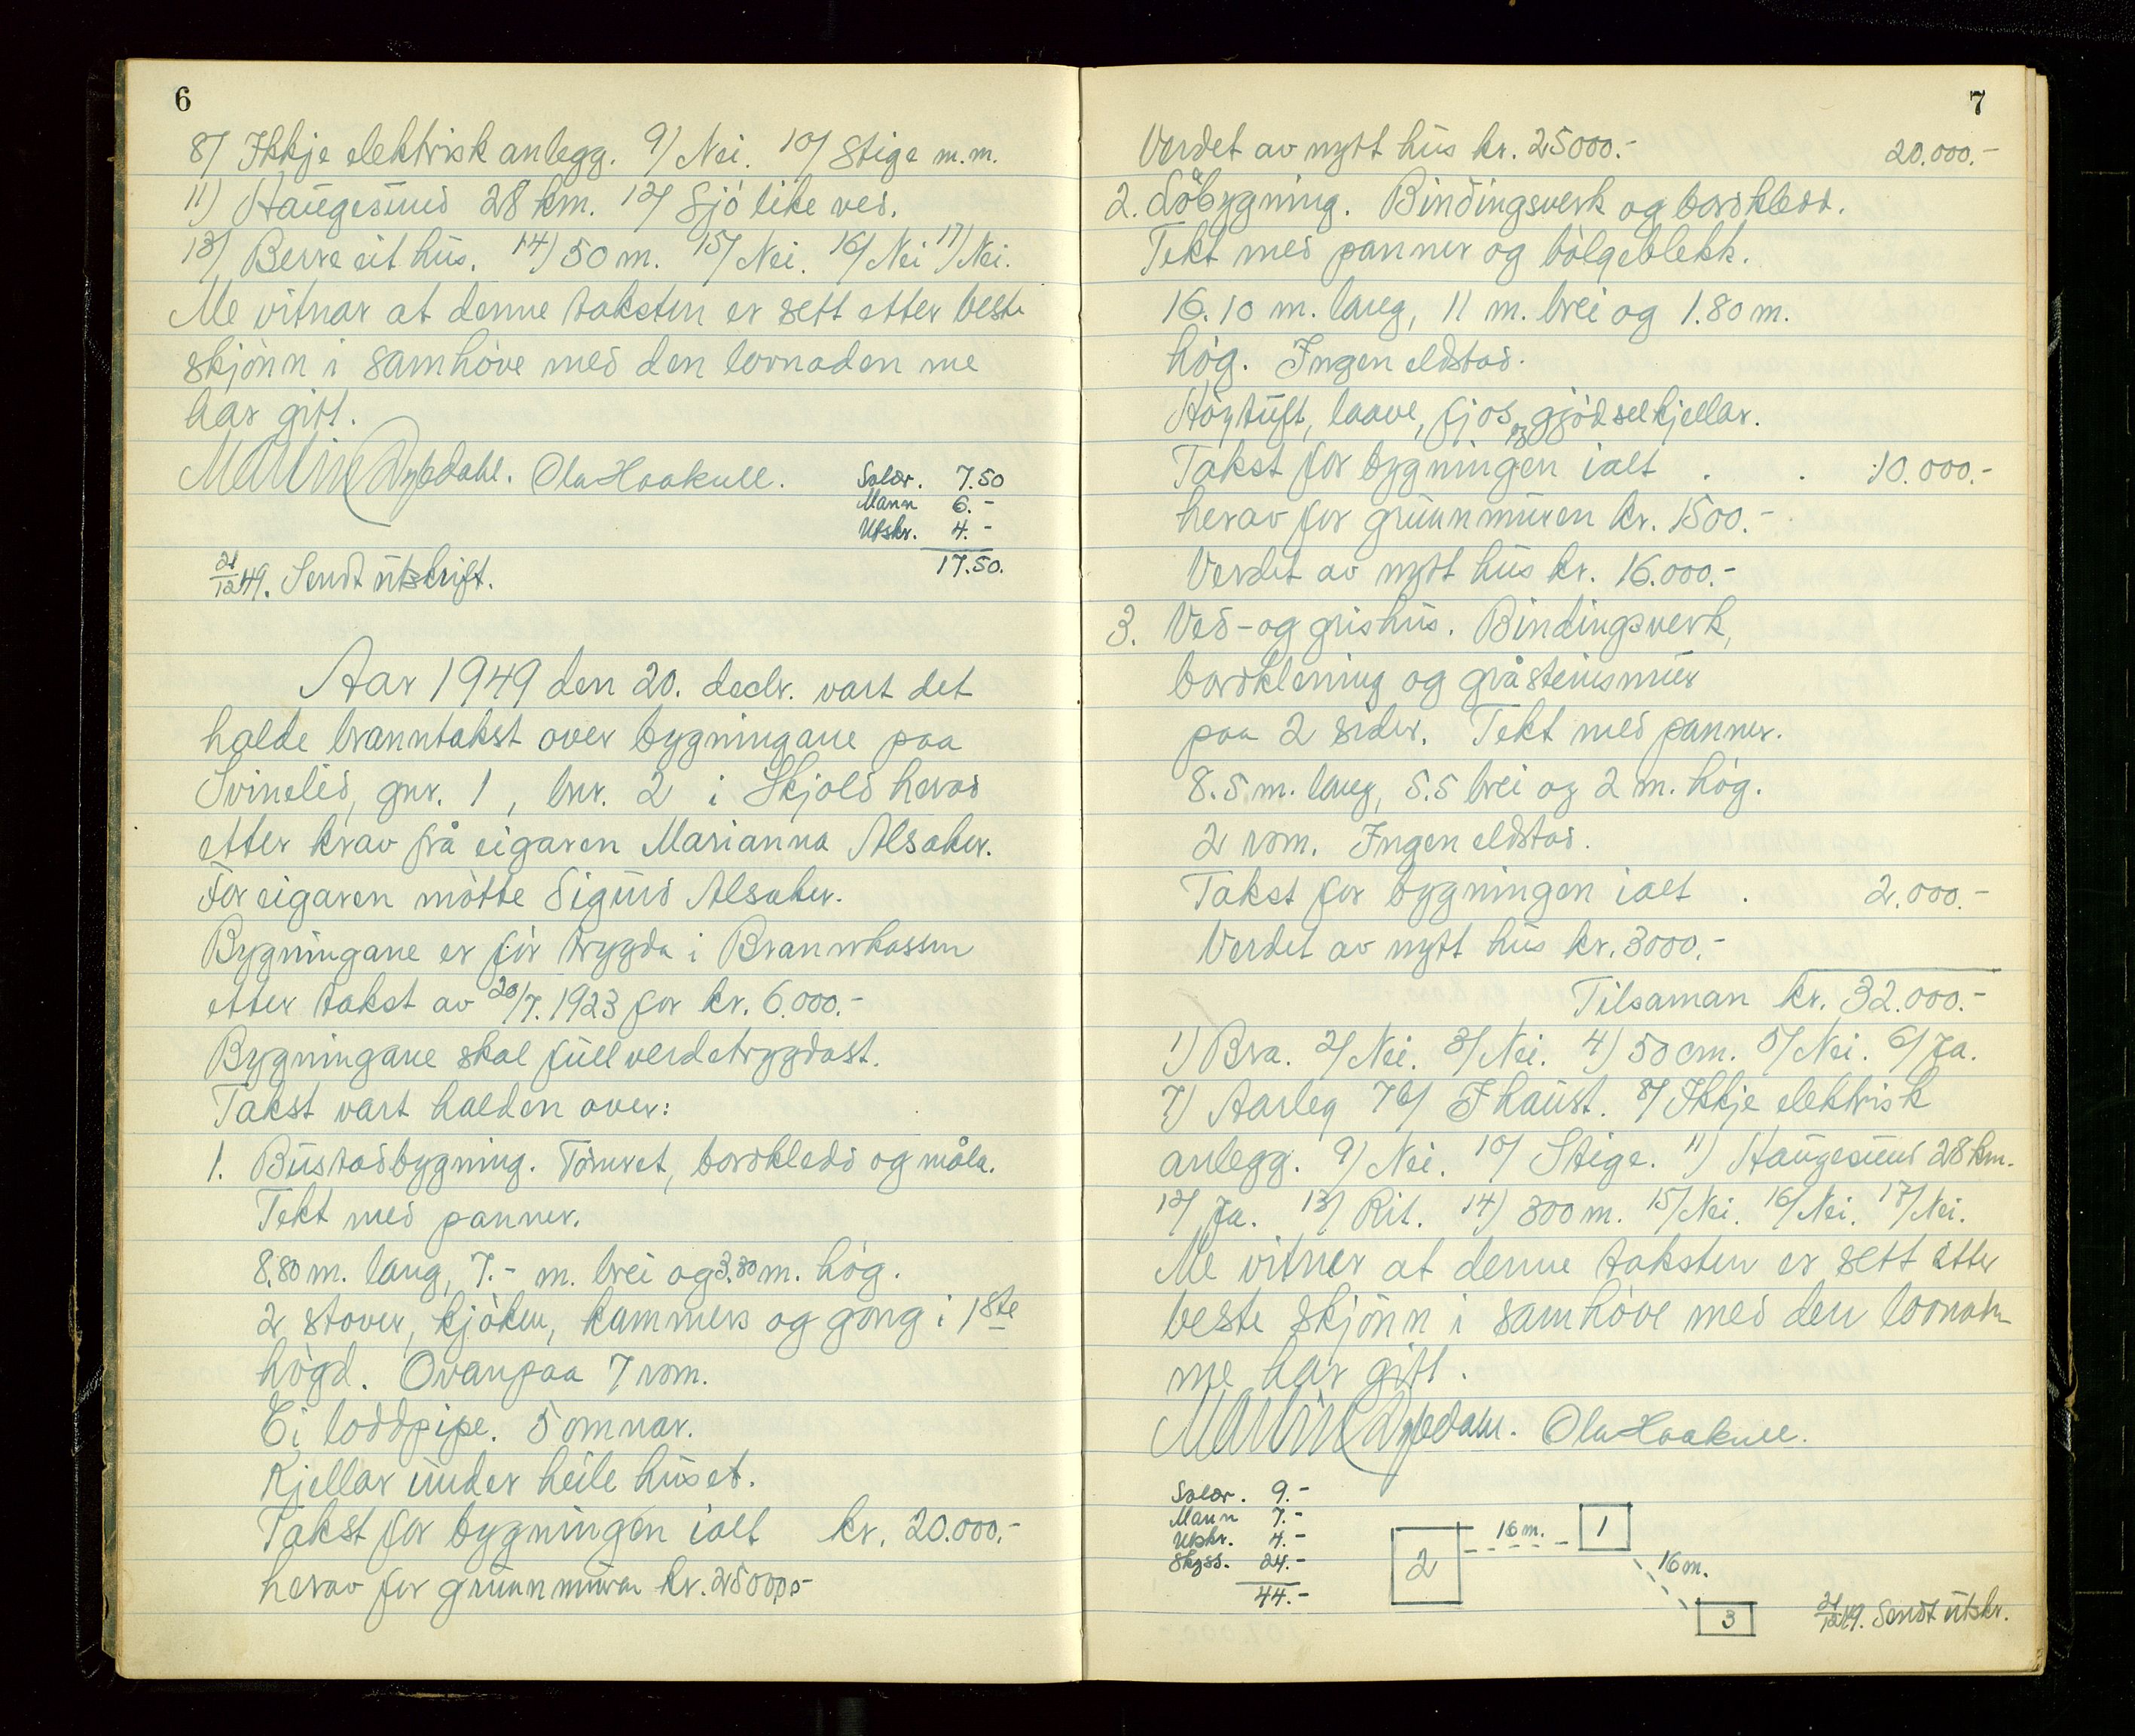 6
8/ Ikkje elektrisk anlegg. 9/ Nei. 10/ Stige m.m.
11) Haugesund 28 km. 12/ Sjö like ved.
13/ Berre eit hus. 14) 50 m. 15/ Nei. 16/ Nei 17/ Nei.
Me vitnar at denne taksten er sett etter beste
skjönn i samhöve med den lovnaden me
har gitt.
Martin Dybdahl. Ola Haakull.
Salær. 7.50
Mann 6.-
Utskr. 4.-
17.50.
21/12 49. Sendt utskrift.
Aar 1949 den 20. decbr. vart det
halde branntakst over bygningane paa
Svinelid, gnr. 1, bnr. 2 i Skjold herad
etter krav frå eigaren Marianna Alsaker.
For eigaren mötte Sigurd Alsaker.
Bygningane er för trygda i Brannkassen
etter takst av 20/7. 1923 for kr. 6.000.-
Bygningane skal fullverdetrygdast.
Takst vart halden over:
1. Bustadbygning. Tömret, bordkledd og måla.
Tekt med panner.
8.80 m. lang, 7.- m. brei og 3.30 m. hög.
2 stover, kjöken, kammers og gong i 1ste
högd. Ovanpaa 7 rom.
Ei loddpipe. 5 omnar.
Kjellar under heile huset.
Takst for bygningen ialt kr. 20.000.-
herav for grunnmuren kr. 2500.-
7
Verdet av nytt hus kr. 25000.- 20.000.-
2. Löbygning. Bindingsverk og bordkledd.
Tekt med panner og bölgeblekk.
16.10 m. lang, 11 m. brei og 1.80 m.
hög. Ingen eldstad.
Höytuft, laave, fjos og gjödselkjellar.
Takst for bygningen ialt . . 10.000.-
herav for grunnmuren kr. 1500.-
Verdet av nytt hus kr. 16.000.-
3. Ved- og grishus. Bindingsverk,
bordkledning og gråsteinsmur
paa 2 sider. Tekt med panner.
8.5 m. lang, 5.5 brei og 2 m. hög.
2 rom. Ingen eldstad.
Takst for bygningen ialt . 2.000.-
Verdet av nytt hus kr. 3000.-
Tilsaman kr. 32.000.-
1) Bra. 2/ Nei. 3/ Nei. 4) 50 cm. 5/ Nei. 6/ Ja.
7) Aarleg 7b/ I haust. 8/ Ikkje elektrisk
anlegg. 9/ Nei. 10/ Stige. 11) Haugesund 28 km.
12/ Ja. 13/ Rit. 14) 300 m. 15/ Nei. 16/ Nei. 17/ Nei.
Me vitner at denne taksten er sett etter
beste skjönn i samhöve med den lovnaden
me har gitt.
Martin Dybdahl. Ola Haakull.
Salær. 9.-
Mann 7.-
Utskr. 4.-
Skyss. 24.-
44.-
2 16 m. 1
16 m.
3
21/12 49. Sendt utskr.